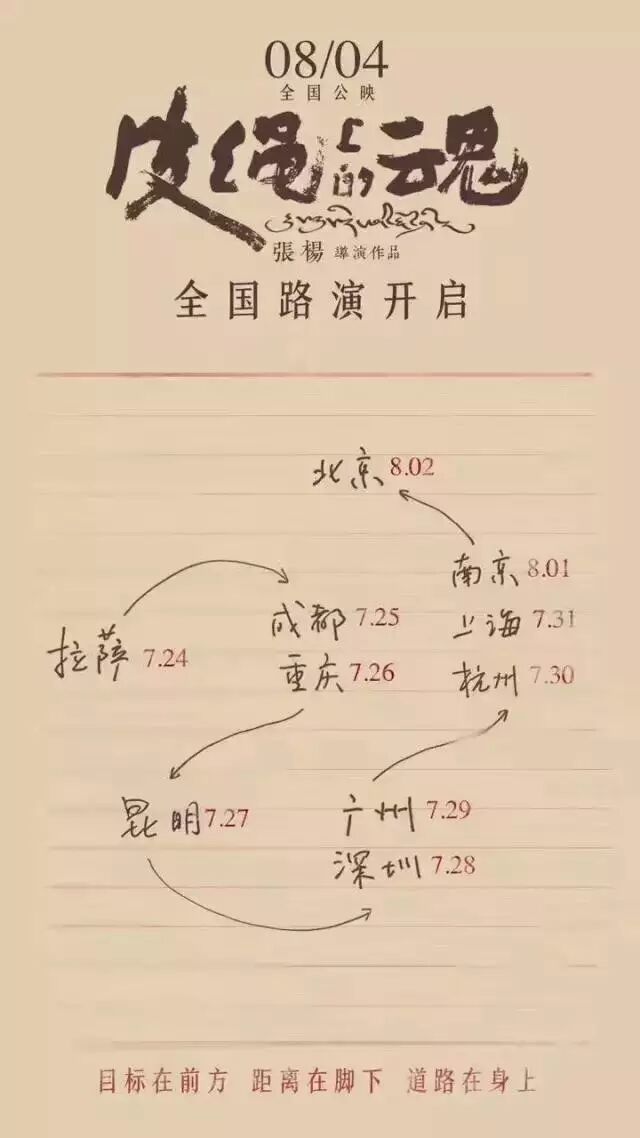 08/04
全国公映
皮绳上的云魂
張楊 導演作品
全国路演开启
北京 8.02
南京 8.01
成都 7.25
上海 7.31
拉萨 7.24
重庆 7.26
杭州 7.30
昆明 7.27
广州 7.29
深圳 7.28
目标在前方 距离在脚下 道路在身上